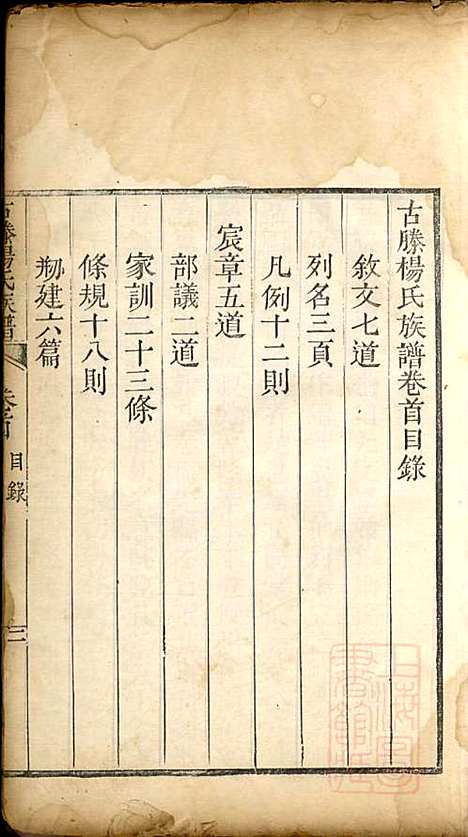 古滕楊氏族譜卷首目錄
敘文七道
列名三頁
凡例十二則
宸章五道
部議二道
家訓二十三條
條規十八則
剏建六篇
古滕楊氏族譜
卷首
目錄